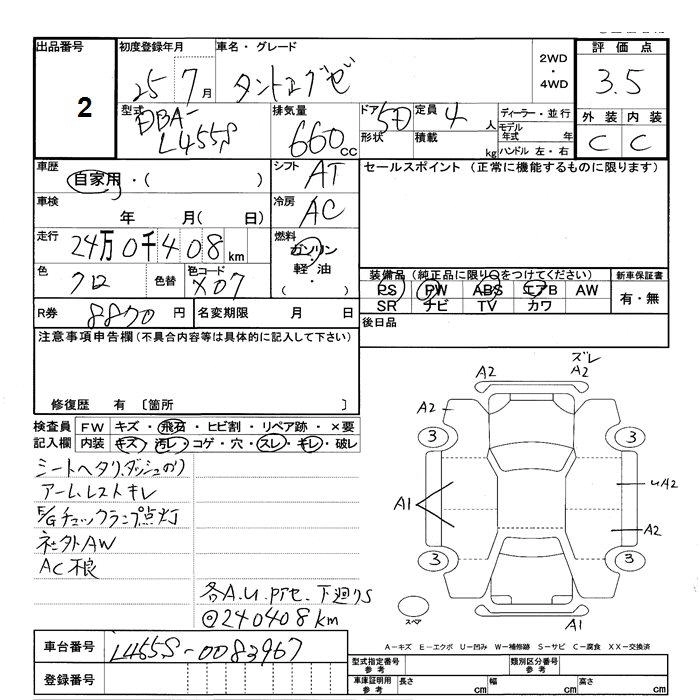 出品番号 初度登録年月 車名・グレード 評価点
2 25 7月 タントエグゼ 2WD・4WD 3.5
型式 DBA-L455S 排気量 660cc ドア形状 5D 定員 4人 積載 kg ディーラー・並行 モデル年式 年 ハンドル 左・右 外装 内装
C C
車歴 自家用・( ) シフト AT セールスポイント (正常に機能するものに限ります)
車検 年 月(日) 冷房 AC
走行 24万0千408km 燃料 ガソリン 軽油・( )
色 クロ 色替 色コード X07 装備品(純正品に限り○をつけてください) 新車保証書
PS PW ABS エアB AW 有・無
SR ナビ TV カワ
R券 8870円 名変期限 月 日 後日品
注意事項申告欄(不具合内容等は具体的に記入して下さい)
修復歴 有 〔箇所 〕
検査員記入欄 FW キズ・飛石・ヒビ割・リペア跡・×要
内装 キズ・汚レ・コゲ・穴・スレ・キレ・破レ
シートヘタリ、ダッシュのり
アームレストキレ
E/Gチェックランプ点灯
社外AW
AC不良
各A.U.P凹セ.下廻りS
◎240408km
A2 ズレ A2
A2
3 3
A1 UA2
A2
3 3
スペア A1
A-キズ E-エクボ U-凹み W-補修跡 S-サビ C-腐食 XX-交換済
車台番号 L455S-0083967
登録番号
型式指定番号 参考 類別区分番号 参考
車庫証明用 参考 長さ cm 幅 cm 高さ cm